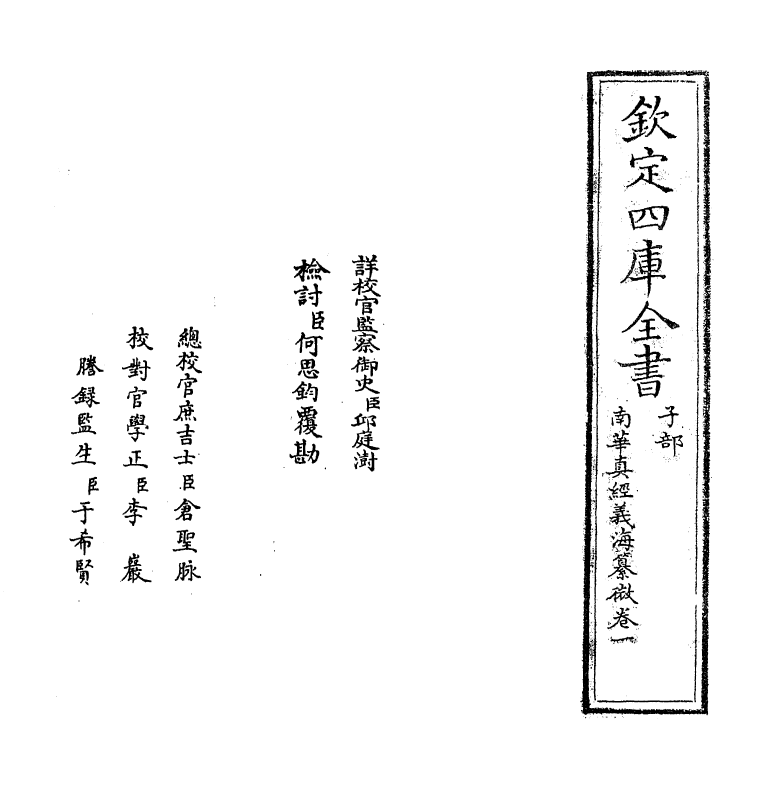 欽定四庫全書
子部
南華真經義海纂微卷一
詳校官監察御史臣邱庭澍
檢討臣何思鈞覆勘
總校官庶吉士臣倉聖脉
校對官學正臣李巖
謄録監生臣于希賢